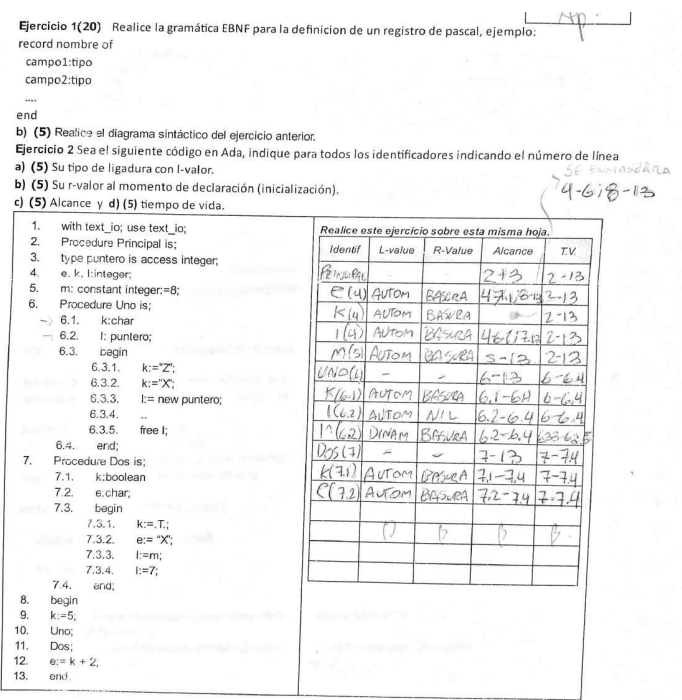 Ap.
Ejercicio 1(20) Realice la gramática EBNF para la definicion de un registro de pascal, ejemplo:
record nombre of
campo1:tipo
campo2:tipo
....
end
b) (5) Realice el diagrama sintáctico del ejercicio anterior.
Ejercicio 2 Sea el siguiente código en Ada, indique para todos los identificadores indicando el número de línea
a) (5) Su tipo de ligadura con l-valor.
SE ENMASCARA
b) (5) Su r-valor al momento de declaración (inicialización).
4-6;8-13
c) (5) Alcance y d) (5) tiempo de vida.
1. with text_io; use text_io;
2. Procedure Principal is;
3. type puntero is access integer;
4. e, k, l:integer;
5. m: constant integer:=8;
6. Procedure Uno is;
6.1. k:char
6.2. l: puntero;
6.3. begin
6.3.1. k:="Z";
6.3.2. k:="X";
6.3.3. l:= new puntero;
6.3.4. ..
6.3.5. free l;
6.4. end;
7. Procedure Dos is;
7.1. k:boolean
7.2. e:char;
7.3. begin
7.3.1. k:=.T.;
7.3.2. e:= "X";
7.3.3. l:=m;
7.3.4. l:=7;
7.4. end;
8. begin
9. k:=5;
10. Uno;
11. Dos;
12. e:= k + 2;
13. end.
Realice este ejercicio sobre esta misma hoja.
Identif L-value R-Value Alcance T.V.
PRINCIPAL - - 2-13 2-13
e(4) AUTOM BASURA 2-13
K(4) AUTOM BASURA 2-13
l(4) AUTOM BASURA 2-13
M(5) AUTOM BASURA 5-13 2-13
UNO(6) - - 6-13 6-6.4
K(6.1) AUTOM BASURA 6.1-6.4 6-6.4
l(6.2) AUTOM NIL 6.2-6.4 6-6.4
l^(6.2) DINAM BASURA 6.2-6.4 6.3.3-6.3.5
DOS(7) - - 7-13 7-7.4
K(7.1) AUTOM BASURA 7.1-7.4 7-7.4
e(7.2) AUTOM BASURA 7.2-7.4 7-7.4
B B B